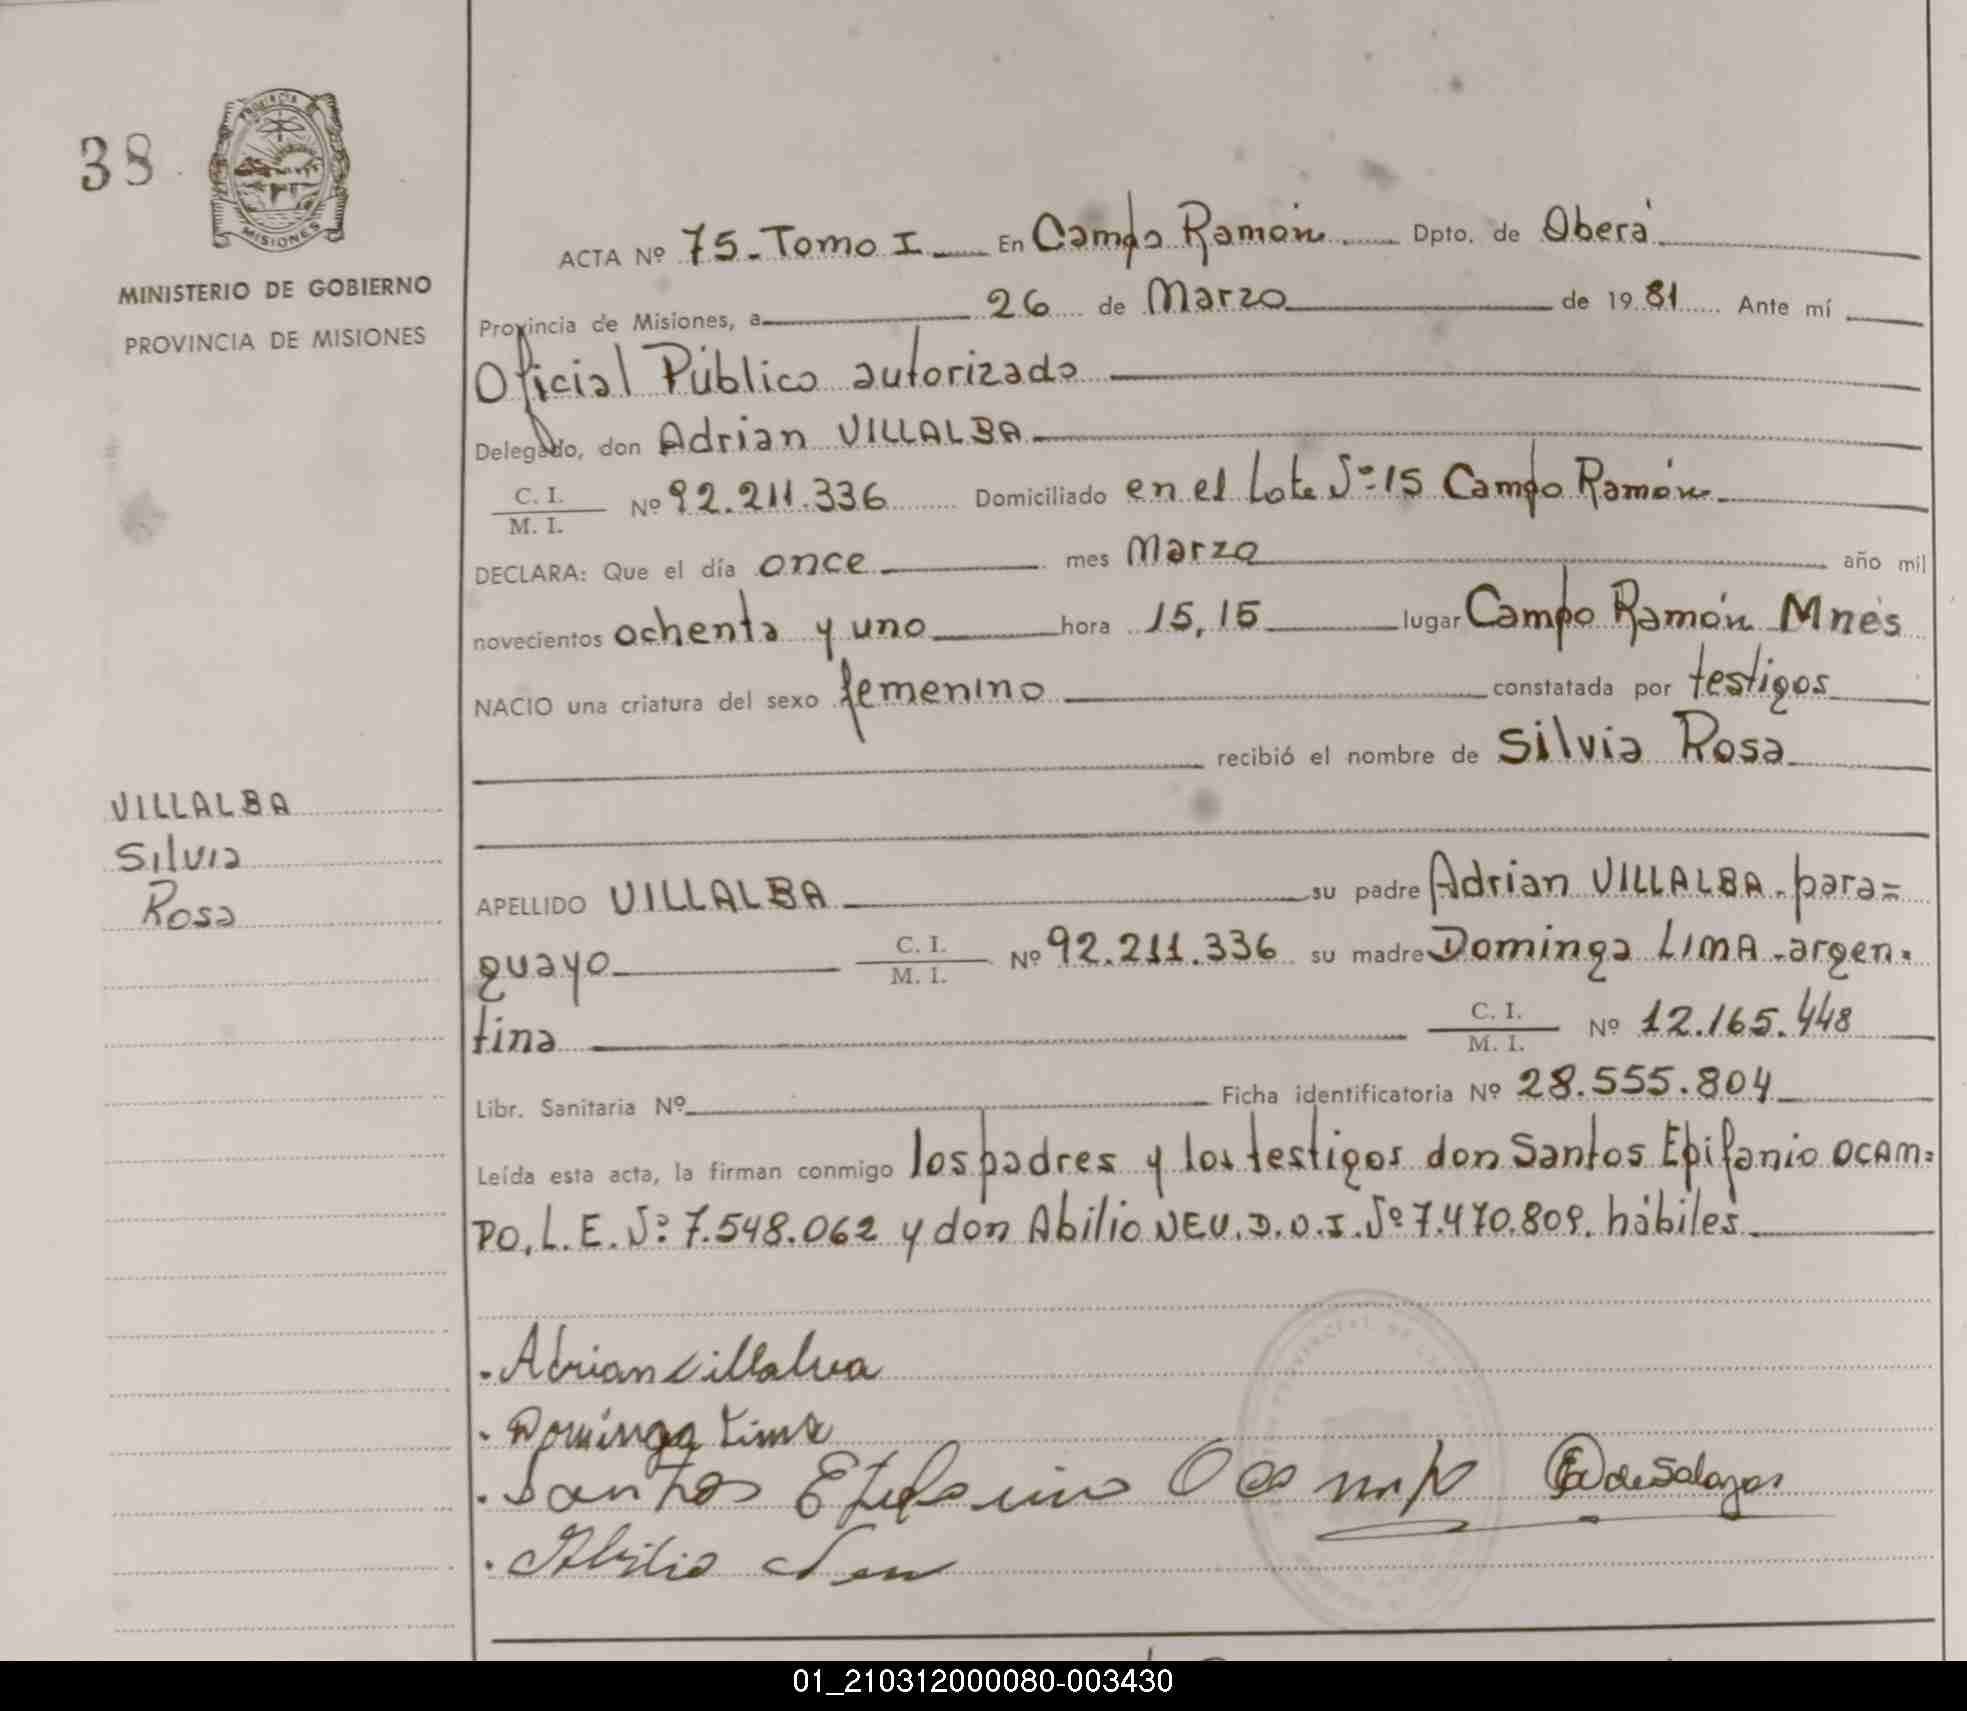 38
PROVINCIA
MISIONES
MINISTERIO DE GOBIERNO
PROVINCIA DE MISIONES
VILLALBA
Silvia
Rosa
ACTA Nº 75-Tomo I En Campo Ramón Dpto. de Oberá
Provincia de Misiones, a 26 de Marzo de 1981 Ante mí
Oficial Público autorizado
Delegado, don Adrian VILLALBA
C. I.
M. I. Nº 92.211.336 Domiciliado en el Lote Nº 15 Campo Ramón
DECLARA: Que el día once mes Marzo año mil
novecientos ochenta y uno hora 15,15 lugar Campo Ramón Mnes
NACIO una criatura del sexo femenino constatada por testigos
recibió el nombre de Silvia Rosa
APELLIDO VILLALBA su padre Adrian VILLALBA-para=
guayo C. I.
M. I. Nº 92.211.336 su madre Dominga LIMA-argen=
tina C. I.
M. I. Nº 12.165.448
Libr. Sanitaria Nº Ficha identificatoria Nº 28.555.804
Leída esta acta, la firman conmigo los padres y los testigos don Santos Epifanio OCAM=
PO, L.E. Nº 7.548.062 y don Abilio NEU.D.O.I. Nº 7.470.809. hábiles
Adrian Villalva
Dominga Lima
Santos Epifanio Ocampo de Salazar
Abilio Neu
01_210312000080-003430